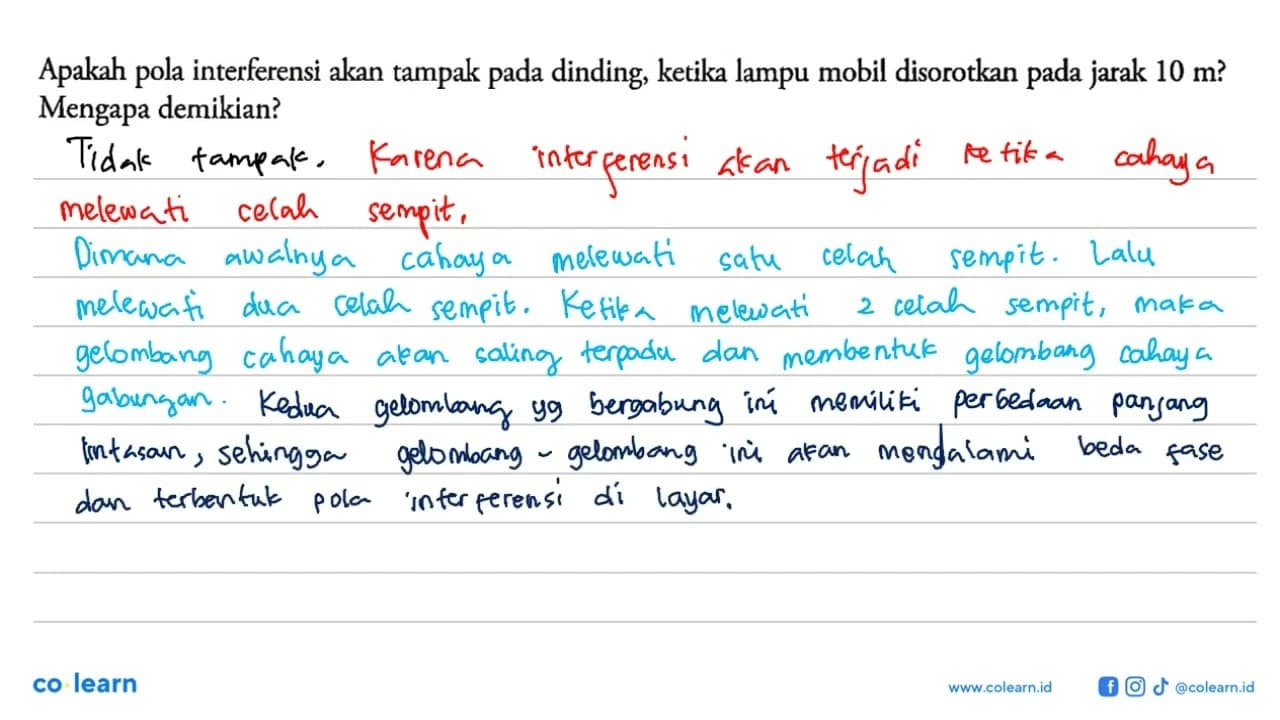 Apakah pola interferensi akan tampak pada dinding, ketika lampu mobil disorotkan pada jarak 10 m?
Mengapa demikian?
Tidak tampak. Karena interferensi akan terjadi ketika cahaya
melewati celah sempit.
Dimana awalnya cahaya melewati satu celah sempit. Lalu
melewati dua celah sempit. Ketika melewati 2 celah sempit, maka
gelombang cahaya akan saling terpadu dan membentuk gelombang cahaya
gabungan. Kedua gelombang yg bergabung ini memiliki perbedaan panjang
lintasan, sehingga gelombang - gelombang ini akan mengalami beda fase
dan terbentuk pola interferensi di layar.
co learn
www.colearn.id @colearn.id